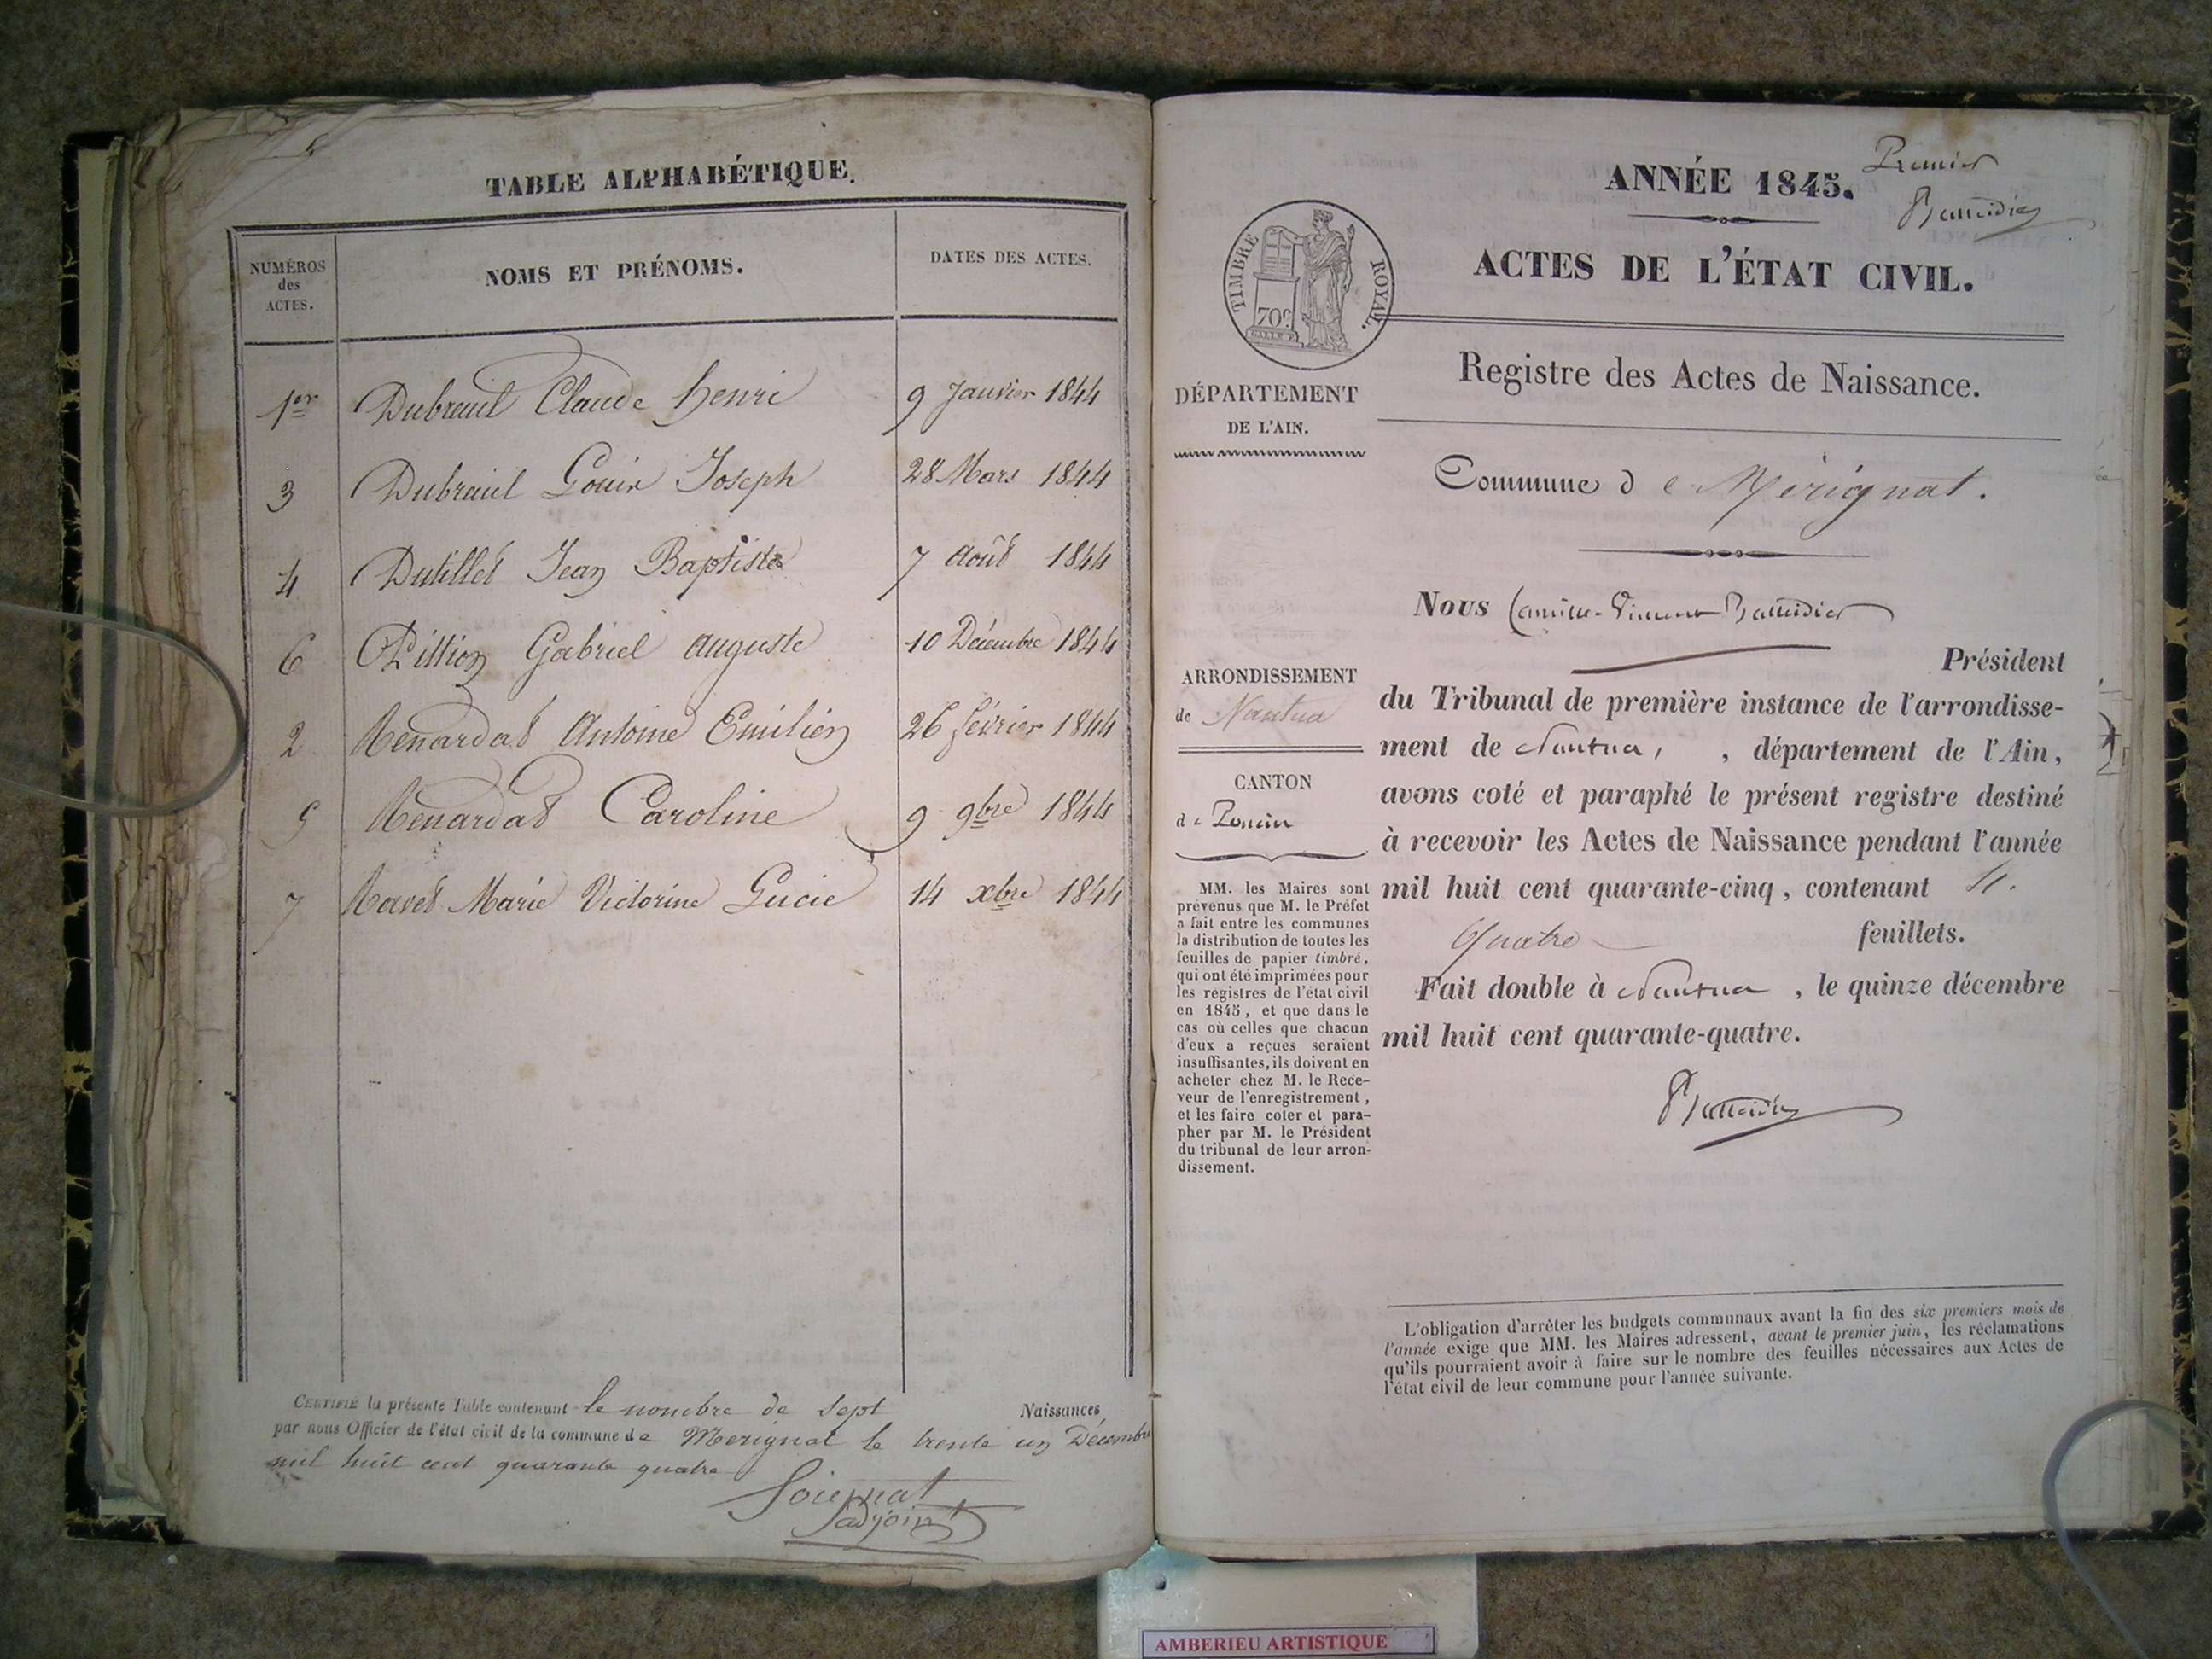 TABLE ALPHABÉTIQUE.
NUMÉROS
des
ACTES.
NOMS ET PRÉNOMS.
DATES DES ACTES.
1er Dubreuil Claude henri 9 Janvier 1844
3 Dubreuil Louis Joseph 28 Mars 1844
4 Dutillet Jean Baptiste 7 Août 1844
6 Pittion Gabriel auguste 10 Décembre 1844
2 Renardat Antoine Emilien 26 février 1844
5 Renardat Caroline 9 9bre 1844
7 Ravet Marie Victorine Lucie 14 xbre 1844
CERTIFIÉ la présente Table contenant le nombre de sept Naissances
par nous Officier de l'état civil de la commune de Merignat le trente un Décembre
mil huit cent quarante quatre
adjoint
Premier
ANNÉE 1845.
ACTES DE L'ÉTAT CIVIL.
TIMBRE ROYAL.
70c
Registre des Actes de Naissance.
DÉPARTEMENT
DE L'AIN.
Commune de Mérignat.
Nous Camille-Vincent
Président
du Tribunal de première instance de l'arrondisse-
ment de Nantua, , département de l'Ain,
avons coté et paraphé le présent registre destiné
à recevoir les Actes de Naissance pendant l'année
mil huit cent quarante-cinq, contenant 4.
Quatre feuillets.
Fait double à Nantua, le quinze décembre
mil huit cent quarante-quatre.
ARRONDISSEMENT
de Nantua
CANTON
de Poncin
MM. les Maires sont
prévenus que M. le Préfet
a fait entre les communes
la distribution de toutes les
feuilles de papier timbré,
qui ont été imprimées pour
les registres de l'état civil
en 1845, et que dans le
cas où celles que chacun
d'eux a reçues seraient
insuffisantes, ils doivent en
acheter chez M. le Rece-
veur de l'enregistrement,
et les faire coter et para-
pher par M. le Président
du tribunal de leur arron-
dissement.
L'obligation d'arrêter les budgets communaux avant la fin des six premiers mois de
l'année exige que MM. les Maires adressent, avant le premier juin, les réclamations
qu'ils pourraient avoir à faire sur le nombre des feuilles nécessaires aux Actes de
l'état civil de leur commune pour l'année suivante.
AMBERIEU ARTISTIQUE